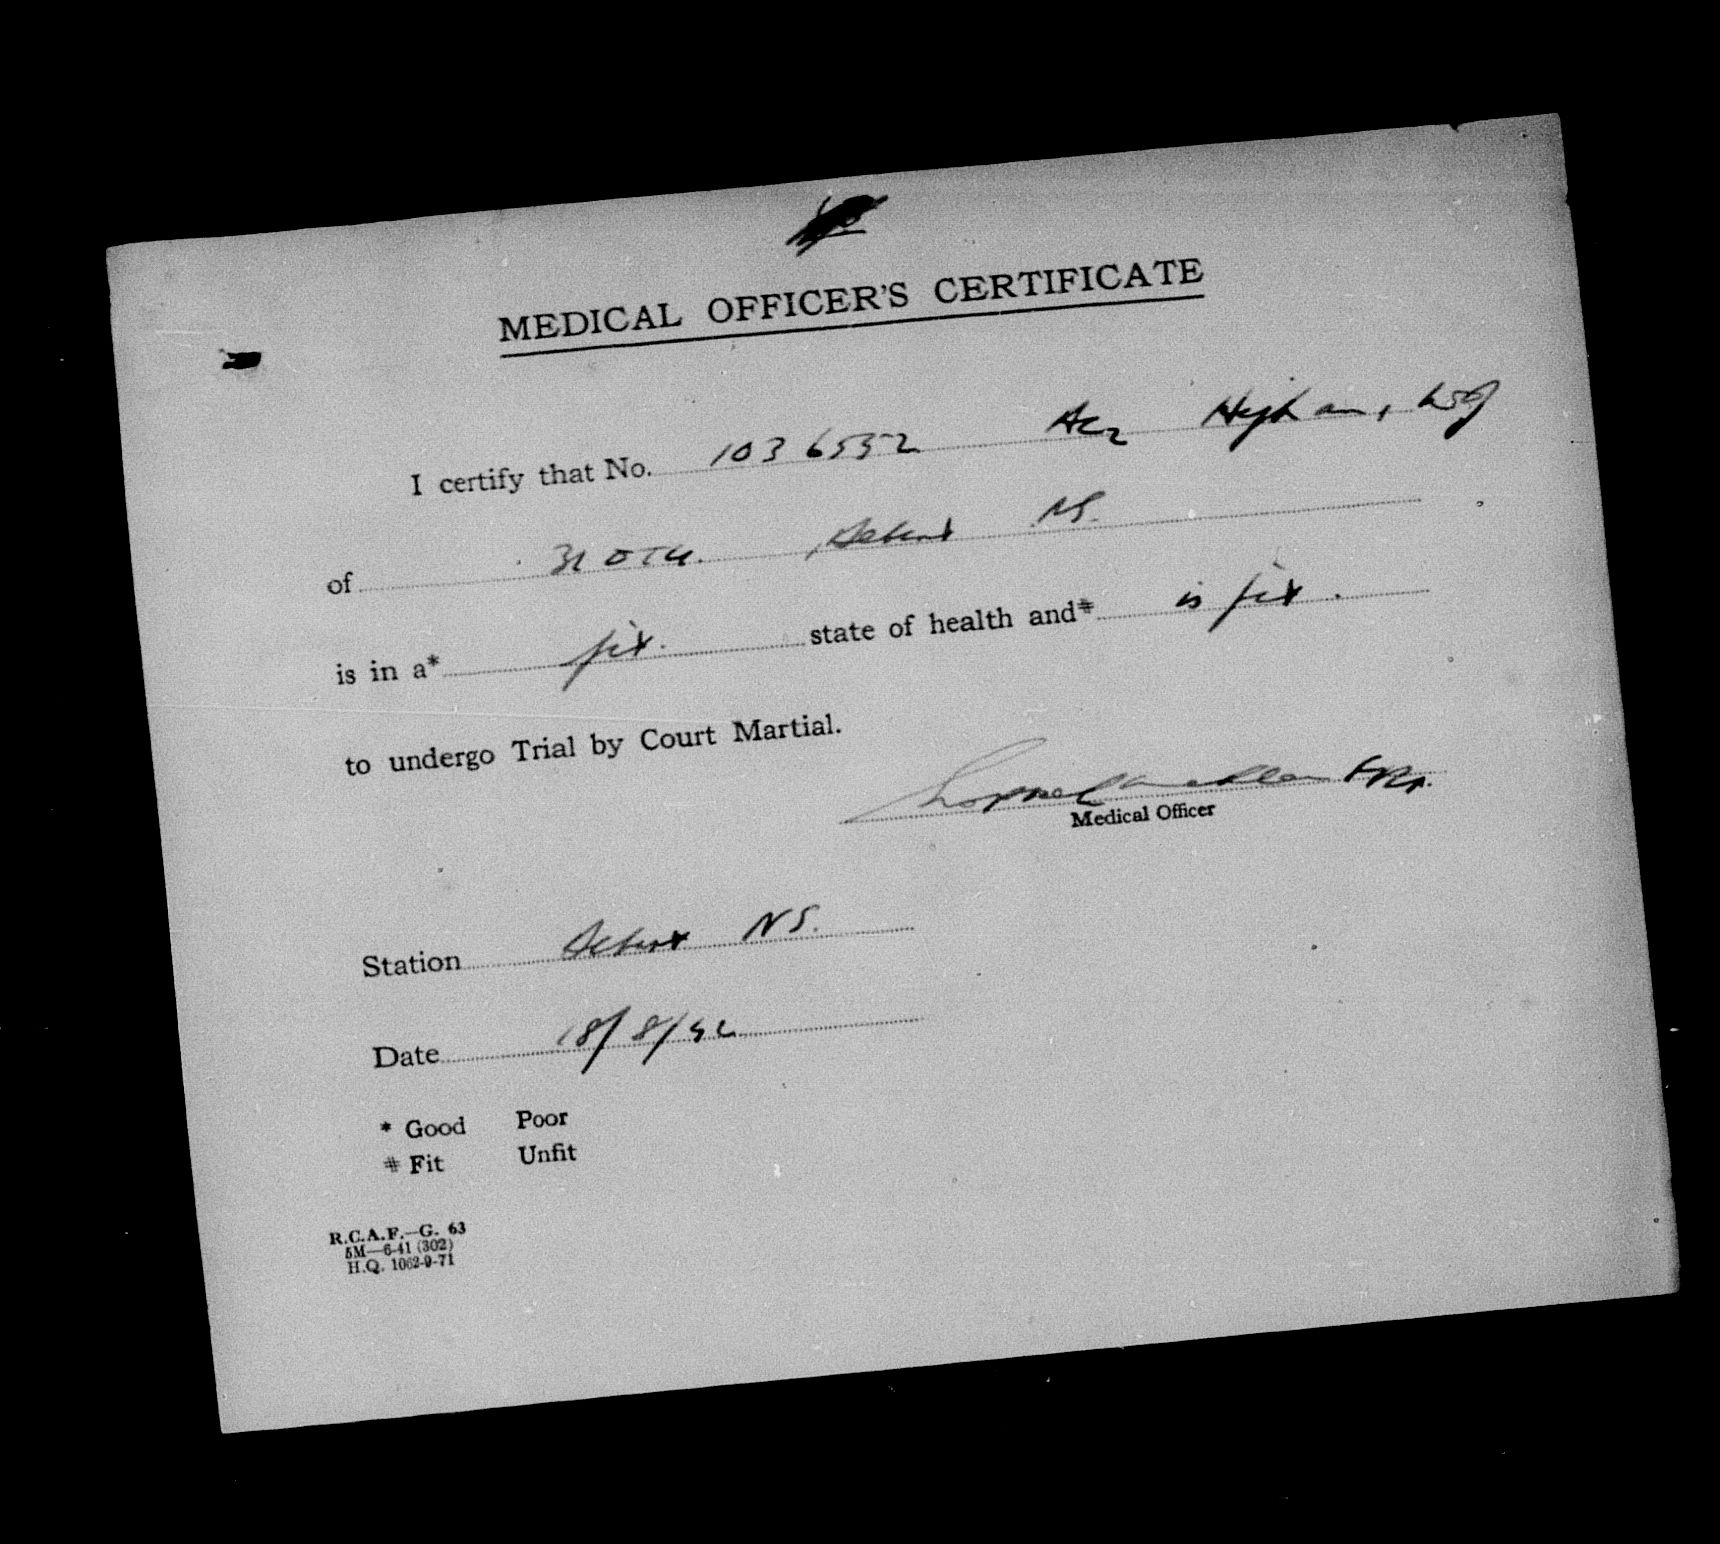 MEDICAL OFFICER'S CERTIFICATE
I certify that No. 1036552 AC2 Higham,
of 31 OTU. Debert NS.
is in a* fit. state of health and# is fit.
to undergo Trial by Court Martial.
Medical Officer
Station Debert NS.
Date 18/8/42
* Good Poor
# Fit Unfit
R.C.A.F.—G. 63
5M—6-41 (302)
H.Q. 1062-9-71